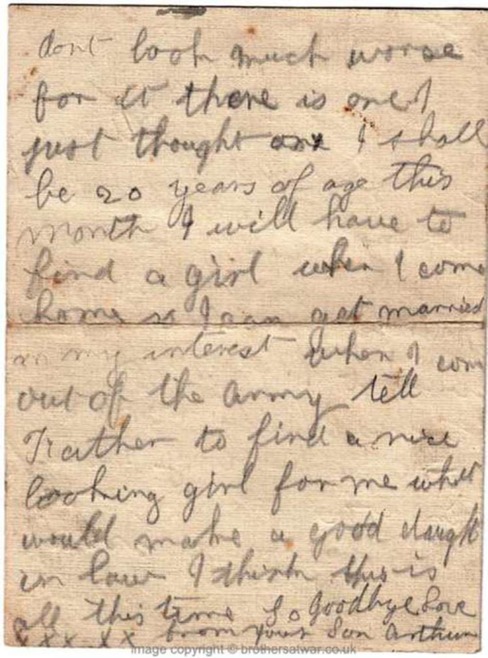 dont look much worse
for it there is one I
just thought I shall
be 20 years of age this
month I will have to
find a girl when I come
home so I can get married
in my interest When I com
out of the army tell
Frather to find a nice
looking girl for me what
would make a good daught
in law I think this is
all this time So Goodbye Love
x x x x x from your Son Arthur
Image copyright © brothersatwar.co.uk